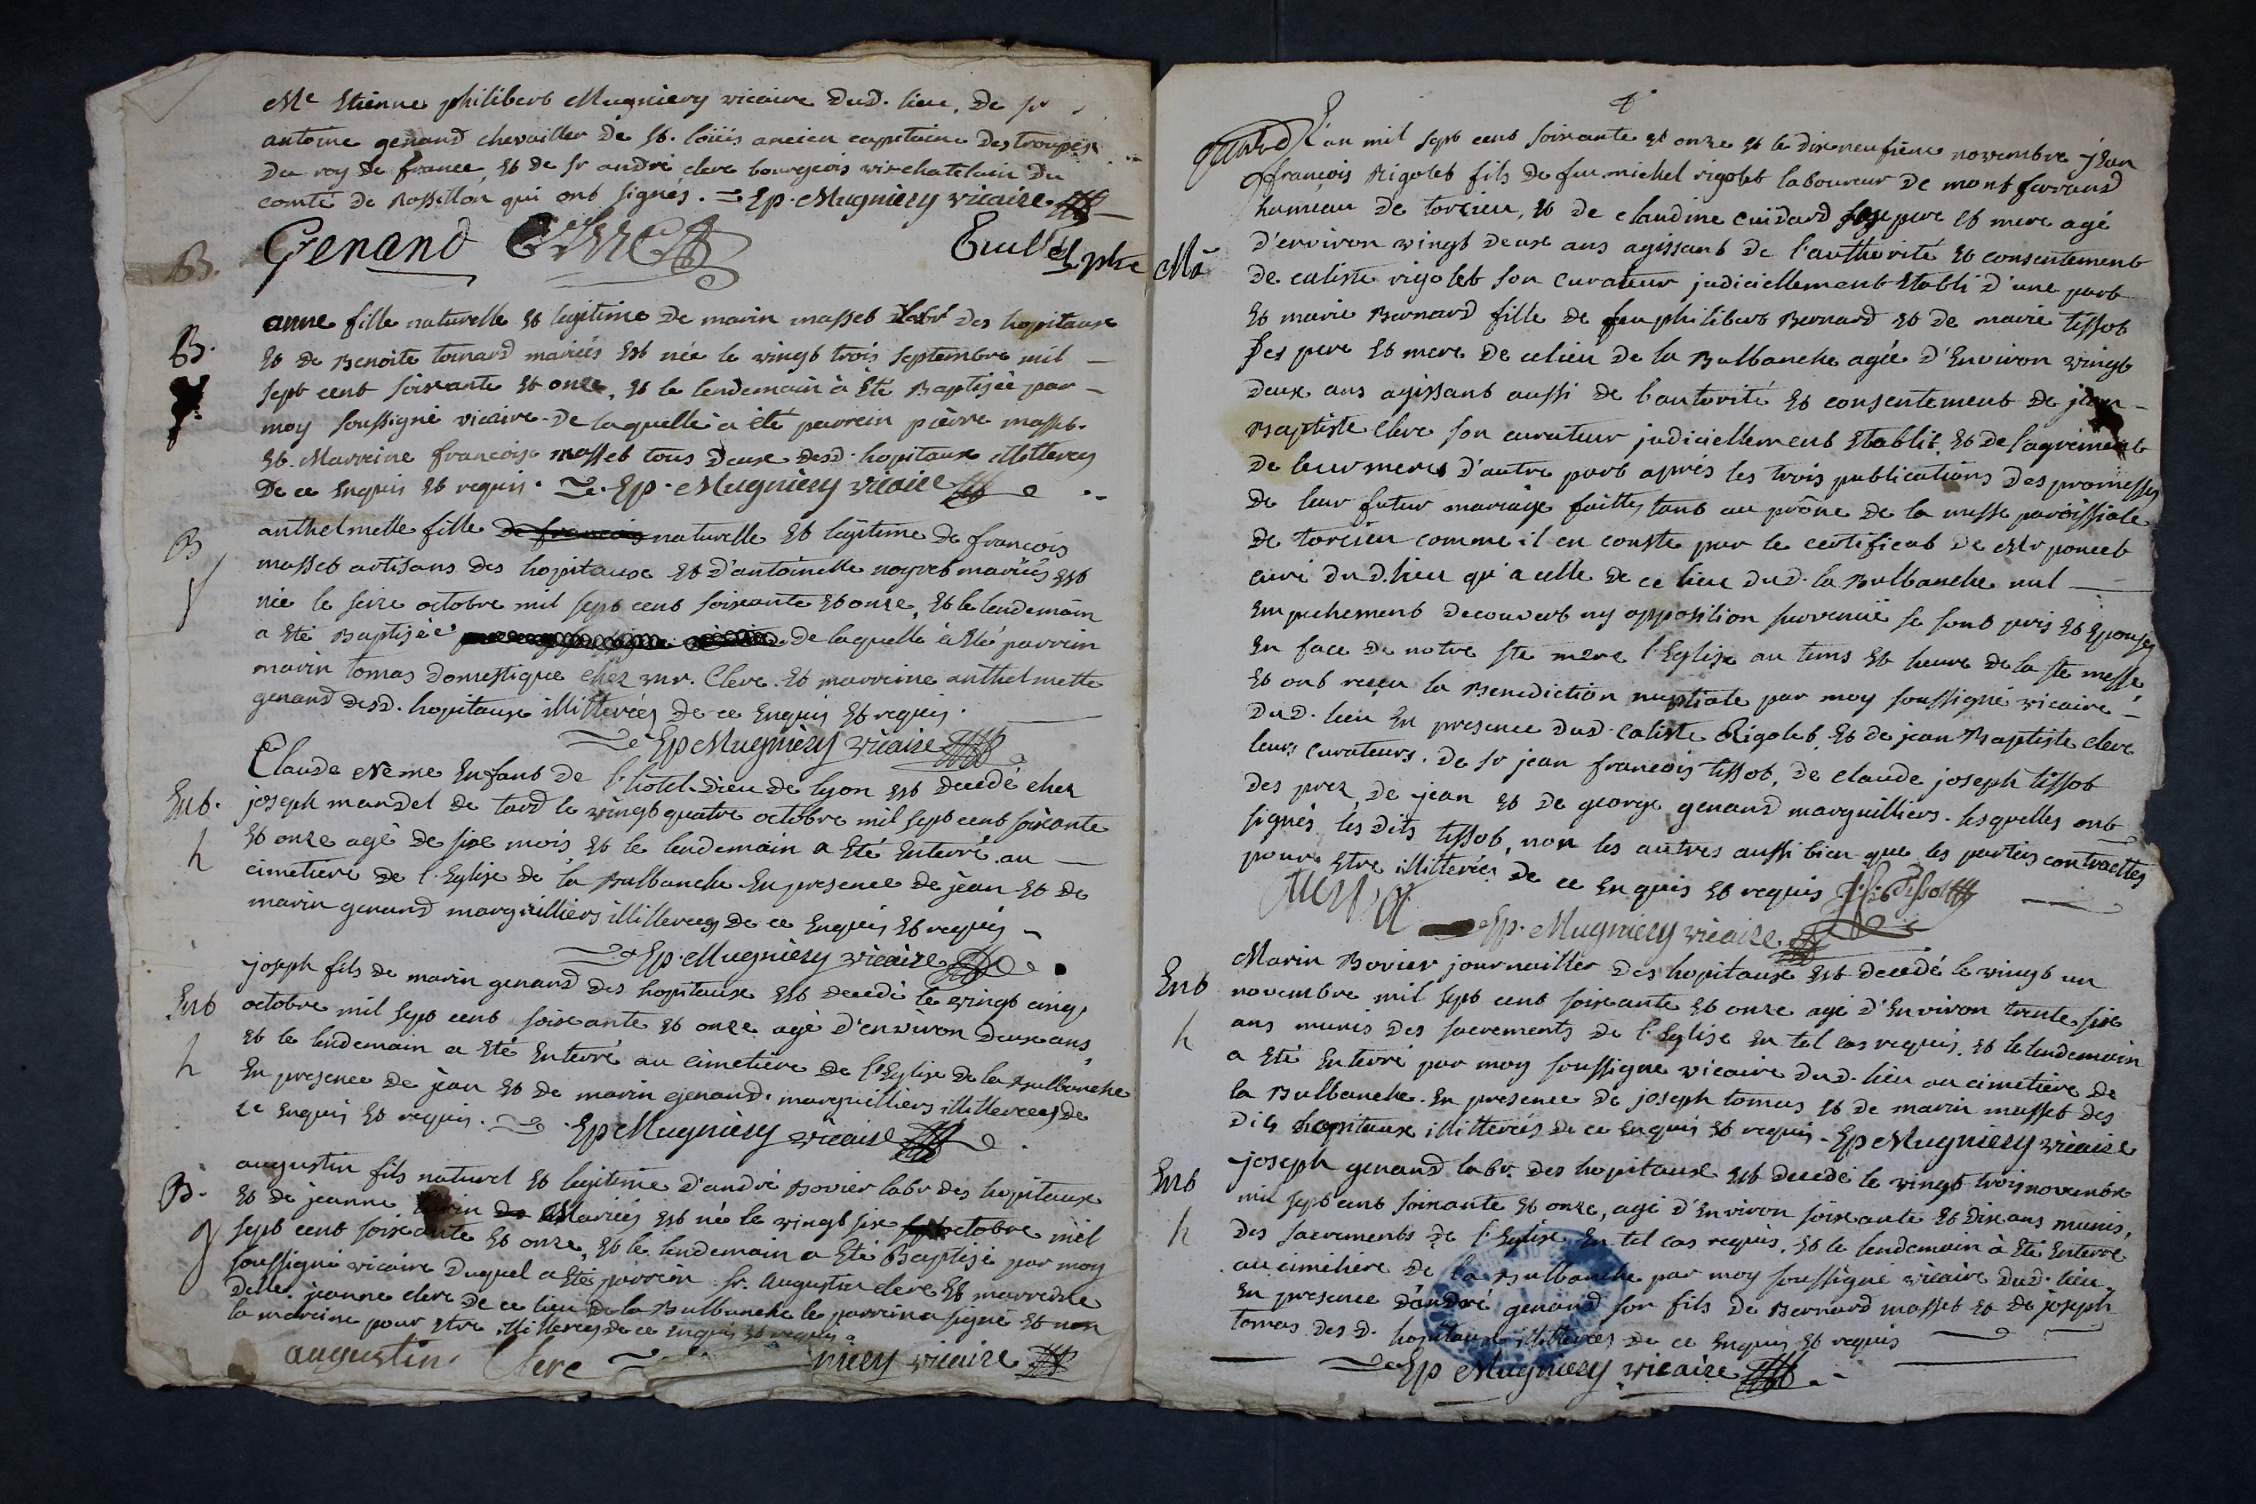 Me Etienne philibert Mugniery vicaire dud. lieu, de sr
antoine genand chevailler de st. loüis ancien capitaine des troupes
du roy de france, et de sr andré clerc bourgeois vischatelain du
comté de Rossillon qui ont signés. Ep. Mugniery vicaire
Genand Clerc ptre
B.
B. anne fille naturelle et legitime de marin masset labr des hopitaux
et de Benoite tornard mariés est née le vingt trois septembre mil
sept cent soixante et onze, et le lendemain à été Baptisée par
moy soussigné vicaire de laquelle à été parrein pièrre masset.
et Marreine francoise masset tous deux desd. hopitaux illiterés
de ce enquis et requis. Ep. Mugniery vicaire
B anthelmette fille de francois naturelle et legitime de francois
masset artisans des hopitaux et d'antoinette noyret mariés est
née le seize octobre mil sept cent soixante et onze, et le lendemain
a été Baptisée de laquelle à été parrein
marin tomas domestique chez mr. Clerc et marreine anthelmette
genand desd. hopitaux illitterées de ce enquis et requis.
Ep Mugniery vicaire
Claude Neme enfant de l'hôtel-dieu de lyon est decedé chez
Ent. joseph mandel de tard le vingt quatre octobre mil sept cent soixante
h et onze agé de six mois et le lendemain a été enterré au
cimetiere de l'Eglise de la Balbanche en presence de jean et de
marin genand marguilliers illiterees de ce enquis et requis
Ep. Mugniery vicaire
joseph fils de marin genand des hopitaux est decedé le vingt cinq
Ent octobre mil sept cent soixante et onze agé d'environ deux ans,
h et le lendemain a été enterré au cimetiere de l'Eglise de la Balbanche
en presence de jean et de marin genand marguilliers illitterees de
ce enquis et requis. Ep Mugniery vicaire
augustin fils naturel et legitime d'andré Bovier labr des hopitaux
B. et de jeanne Mariés est né le vingt six octobre mil
sept cent soixante et onze, et le lendemain a été Baptisé par moy
soussigné vicaire duquel a été parrein sr. Augustin clerc et marreine
delle. jeanne clerc de ce lieu de la Balbanche le parrein a signé et non
la mareine pour etre illiterées de ce enquis et requis
augustin Clerc niery vicaire
L'an mil sept cent soixante et onze et le dixneufiéme novembre jean
françois Rigolet fils de feu michel rigolet laboureur de mont ferrand
hameau de torcieu, et de claudine cuidard ses pere et mere agé
d'environ vingt deux ans agissant de l'authorité et consentement
Ma de caliste rigolet son curateur judiciellement etabli d'une part
et marie Bernard fille de feu philibert Bernard et de marie tissot
ses pere et mere de ce lieu de la Balbanche agée d'environ vingt
deux ans agissant aussi de l'autorité et consentement de jean
Baptiste clerc son curateur judiciellement etabli, et de l'agrement
de leur meres d'autre part aprés les trois publications des promesses
de leur futur mariage faittes tant au prône de la messe paroissiale
de torcieu comme il en conste par le certificat de Mr poncet
curé dud. lieu qu'a celle de ce lieu dud. la Balbanche nul
empechement decouvert ny opposition survenuë se sont pris et Epousés
en face de notre ste mere l'Eglise au tems et heure de la ste messe
et ont reçu la Benediction nuptiale par moy soussigné vicaire
dud. lieu en presence dud. caliste Rigolet, et de jean Baptiste clerc
leurs curateurs. de sr jean francois tissot, de claude joseph tissot
des prez, de jean et de george genand marguilliers. lesquelles ont
signés les dits tissot, non les autres aussi bien que les parties contractes
pour etre illitterés de ce enquis et requis Tissot
Ep. Mugniery vicaire
Marin Bovier journailler des hopitaux est decedé le vingt un
Ent novembre mil sept cent soixante et onze agé d'environ trente six
h ans munis des sacrements de l'Eglise en tel cas requis. et le lendemain
a été enterré par moy soussigné vicaire dud. lieu au cimetiere de
la Balbanche. en presence de joseph tomas et de marin masset des
dits hopitaux illitterés de ce enquis et requis. Ep Mugniery vicaire
joseph genand labr. des hopitaux est decedé le vingt trois novembre
Ent mil sept cent soixante et onze, agé d'environ soixante et dix ans munis,
h des sacrements de l'Eglise en tel cas requis, et le lendemain à été enterré
au cimetière de la Balbanche par moy soussigné vicaire dud. lieu
en presence d'andré genand son fils de Bernard masset et de joseph
tomas des d. hopitaux illitterés de ce enquis et requis
Ep Mugniery vicaire